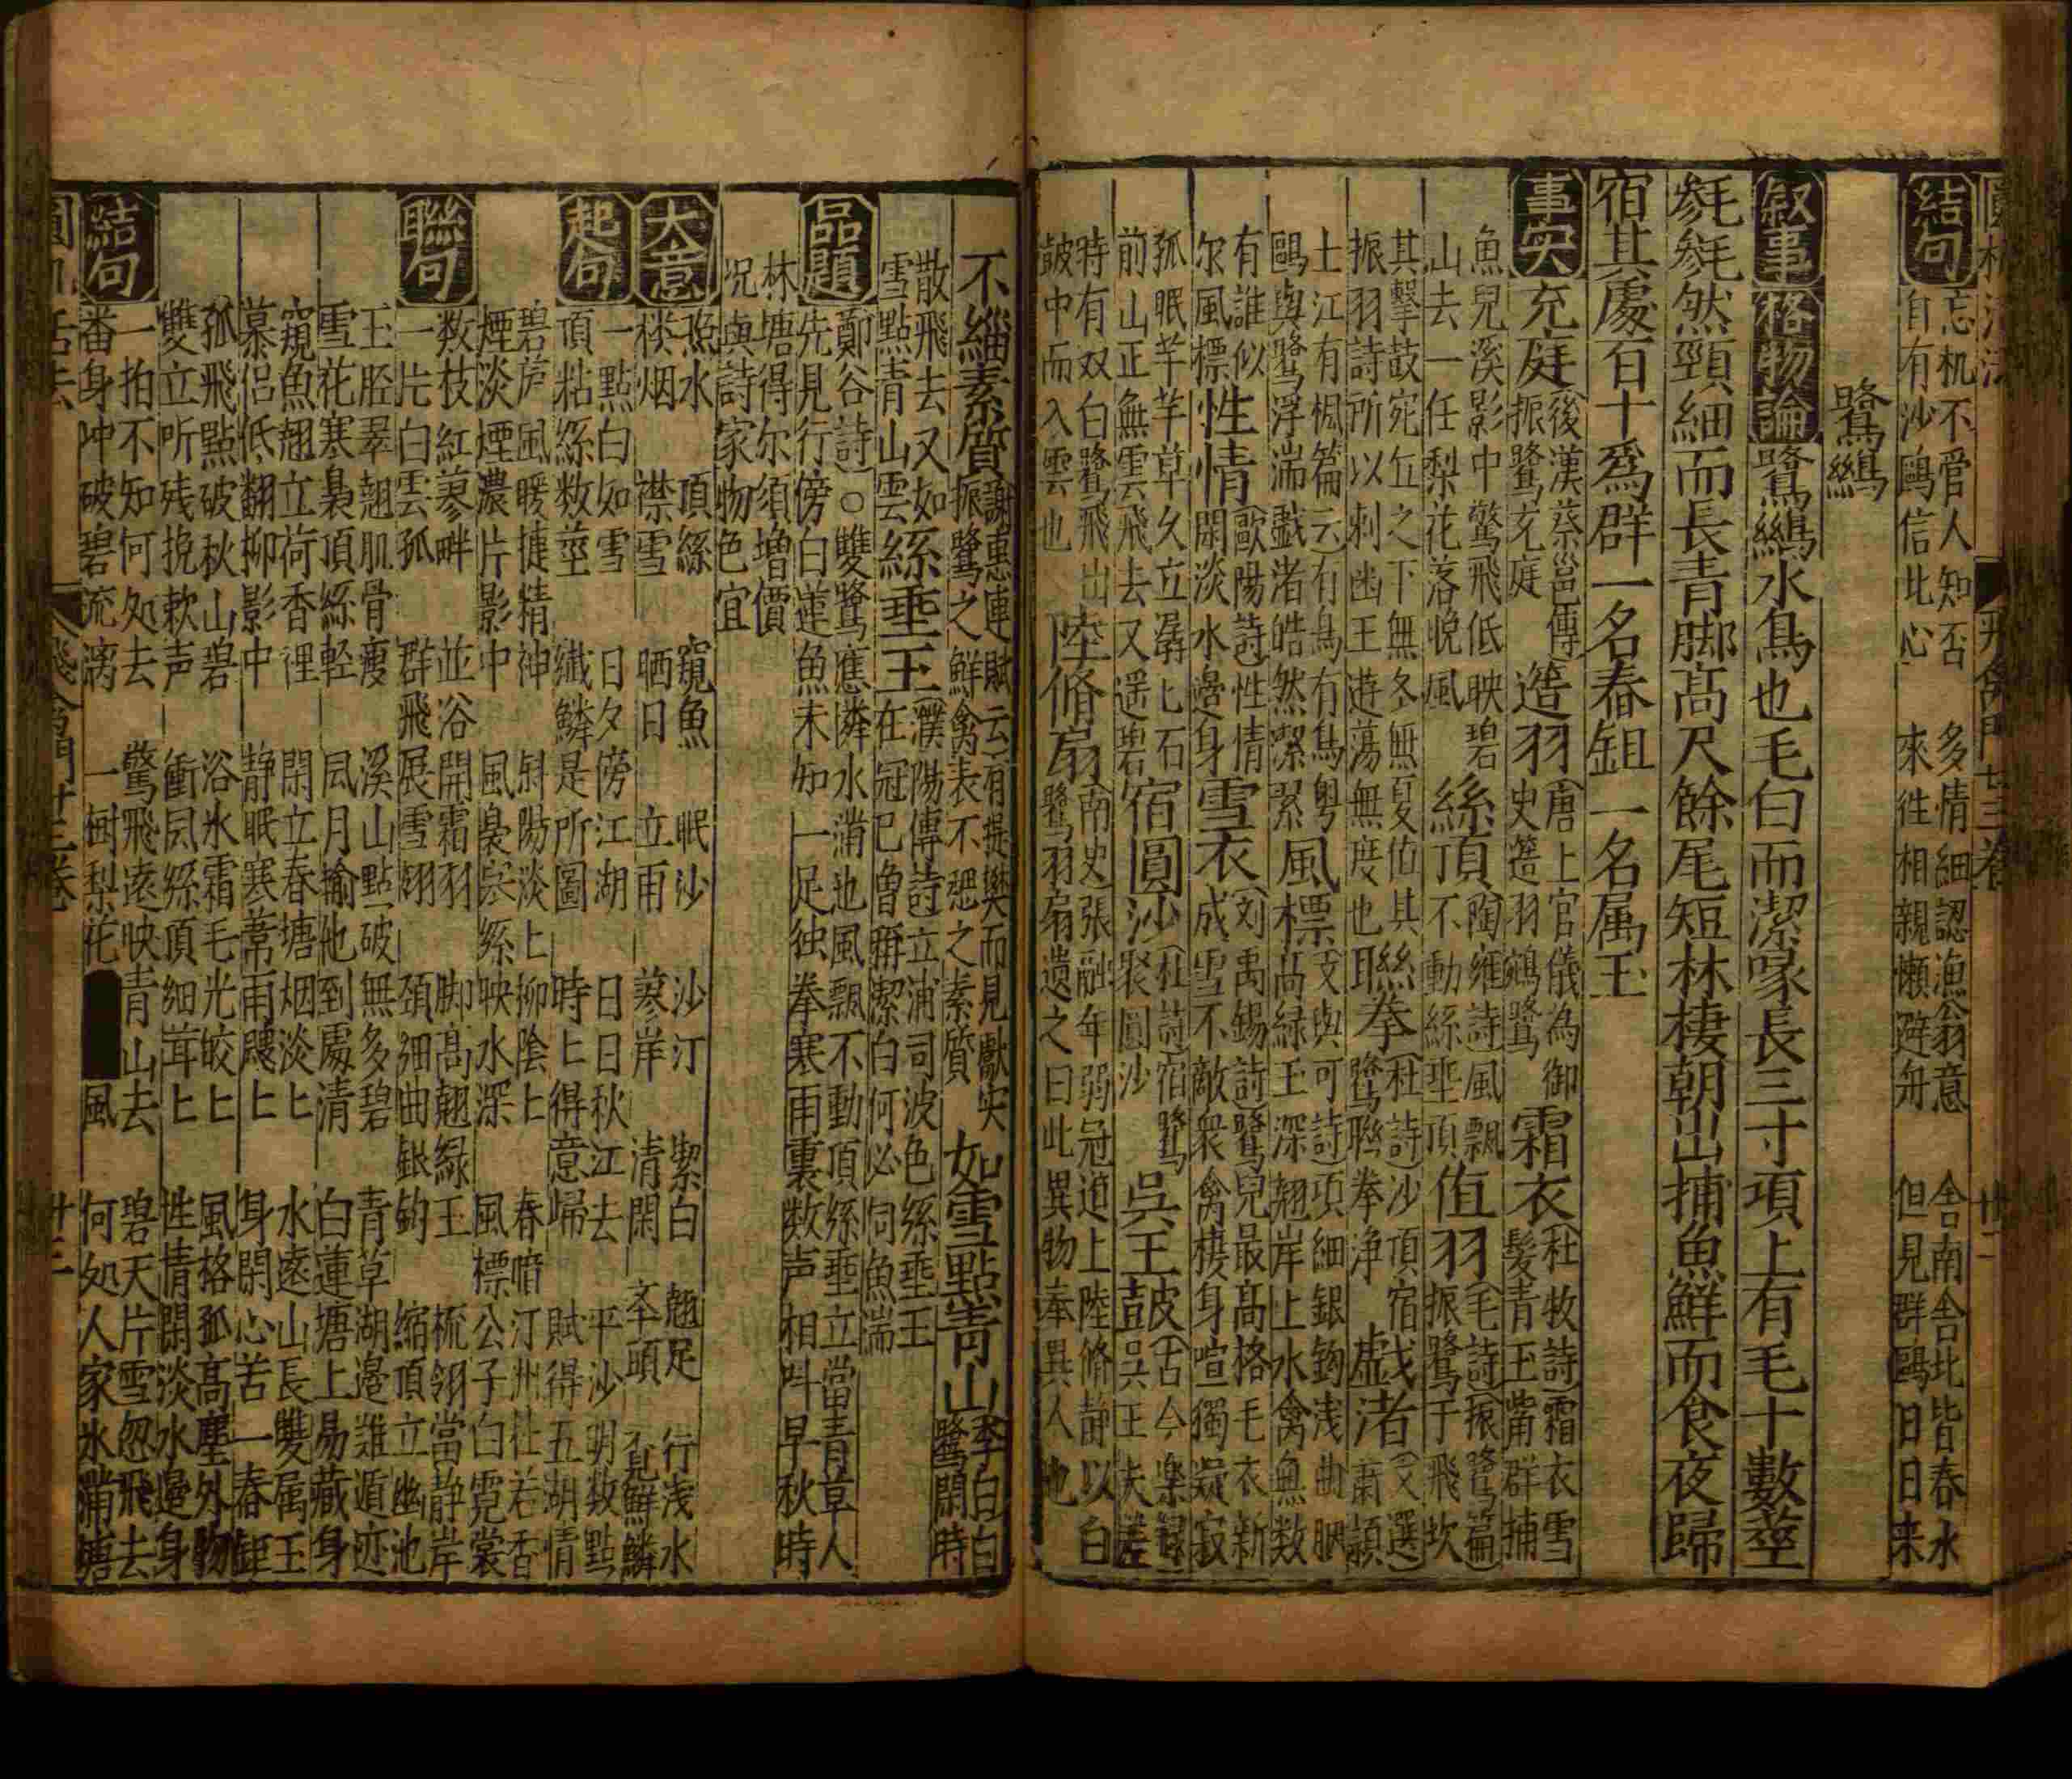 結句
忘机不管人知否　多情細認漁翁意　舍南舍北皆春水
自有沙鷗信此心　來徃相親懶避舟　但見群鷗日日来
鷺鷥
叙事　格物論　鷺鷥水鳥也毛白而潔喙長三寸項上有毛十數莖
毵毵然頸細而長青脚高尺餘尾短林棲朝出捕魚鮮而食夜歸
宿其處百十爲群一名春鉏一名属玉
事实　充庭（後漢蔡邕傳）振鷺充庭　造羽（唐上官儀為御史）造羽鵷鷺　霜衣（杜牧詩）霜衣雪髮青玉觜群捕
魚兒溪影中驚飛低映碧山去一任梨花落晚風　絲頂（陶雍詩）風飄不動絲垂頂　值羽（毛詩）（振鷺篇）振鷺于飛坎
其擊鼓宛丘之下無冬無夏值其振羽詩所以刺幽王遊蕩無度也　聯拳（杜詩）沙頂宿鷺聯拳浄　戯渚（文選）肅穎
士江有楓篇云有鳥有鳥粤鷗與鷺浮湍戯渚皓然潔絜　風標（文與可詩）項細銀鈎浅曲脚高緑玉深翹岸上水禽無数
有誰似尔風標　性情（歐陽詩）性情閑淡水邊身　雪衣（刘禹錫詩）鷺兒最高格毛衣新成雪不敵衆禽棲身喧獨凝寂
孤眠芊芊草久立潺匕石前山正無雲飛去又遥碧　宿圓沙（杜詩）宿鷺聚圓沙　吳王皷（古今樂録）吳王夫差
時有双白鷺飛出皷中而入雲也　陸脩扇（南史）張融年弱冠迫上陸脩静以白鷺羽扇遺之曰此異物奉異人也
不緇素質（謝惠連賦云）有提樊而見獻实振鷺之鮮禽表不䙴之素質　如雪點青山（李白）白鷺閑時
散飛去又如雪點青山雲　絲垂玉（濮陽傳詩）立浦司波色絲垂玉在冠已曽聨潔白何必伺魚湍
品題　鄭谷詩○雙鷺應憐水滿池風飄不動頂絲垂立當青草人
先見行傍白蓮魚未知一足独拳寒雨裏数声相呌早秋時
林塘得尔須增價况與詩家物色宜
大意　照水　頂絲　窺魚　眠沙　沙汀　絜白　翹足　行浅水
楼烟　襟雪　晒日　立雨　蓼岸　清閑　䇿頭　覔鮮鱗
起句　一點白如雪　日夕傍江湖　日日秋江去　平沙明数點
頂粘絲数莖　纎鱗是所圖　時匕得意歸　賦得五湖情
碧芦風暖㨗精神　斜陽淡上柳陰匕　春暗汀洲杜若香
煙淡煙濃片影中　風裊絲映水深　風標公子白霓裳
聯句　数枝紅蓼畔　並浴開霜羽　脚高翹緑玉　梳翎當静岸
一片白雲孤　群飛展雪翎　頚細曲銀鈎　縮頂立幽池
玉脛翠翹肌骨瘦　溪山點破無多碧　青草湖邉難遁迹
雪花寒裊頂絲輕　風月揄他到處清　白蓮塘上易藏身
窺魚翹立荷香裡　閑立春塘烟淡匕　水遠山長雙属玉
慕侣低翻柳影中　静眠寒葦雨颼匕　身閑心苦一春鉏
孤飛點破秋山碧　浴水霜毛光皎匕　風格孤高塵外物
雙立听残挽欸声　衝風絲頂細茸匕　性情閑淡水邉身
結句　一拍不知何处去　驚飛遠映青山去　碧天片雪忽飛去
番身冲破碧流漓　一樹梨花　風　何处人家氷滿塘